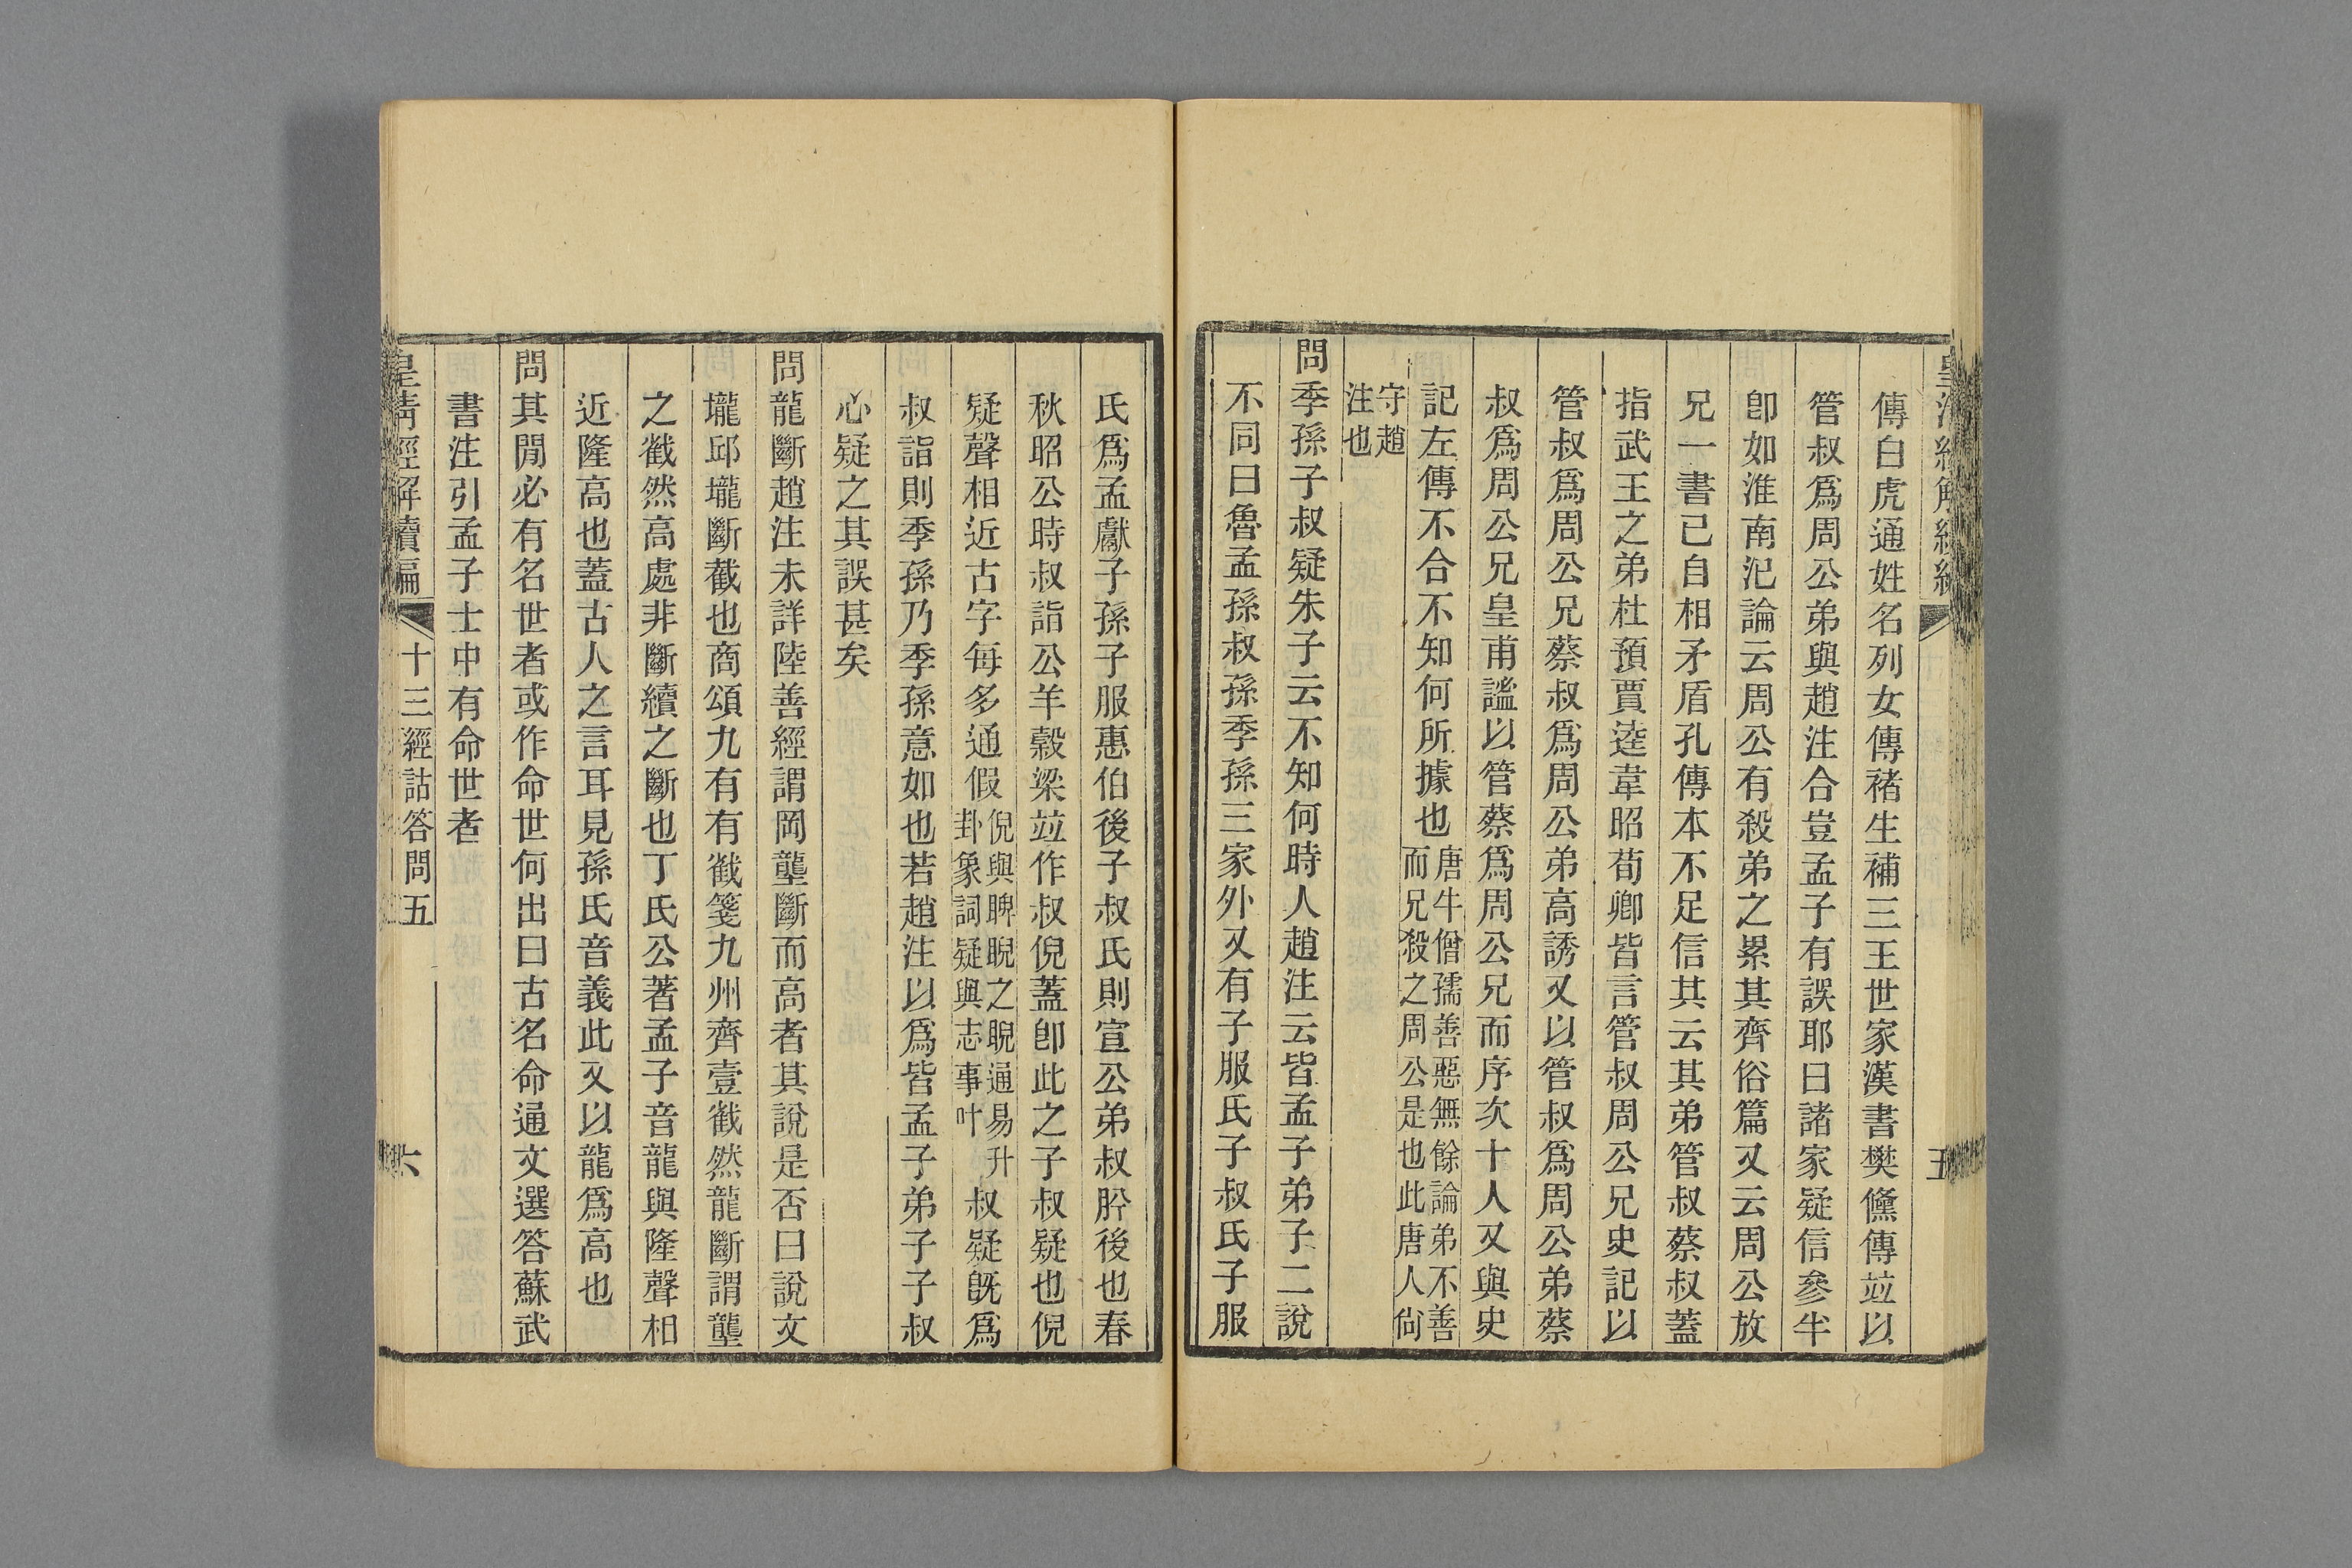 傳白虎通姓名列女傳褚生補三王世家漢書樊儵傳竝以
管叔爲周公弟與趙注合豈孟子有誤耶曰諸家疑信參半
卽如淮南氾論云周公有殺弟之累其齊俗篇又云周公放
兄一書已自相矛盾孔傳本不足信其云其弟管叔蔡叔蓋
指武王之弟杜預賈逵韋昭荀卿皆言管叔周公兄史記以
管叔爲周公兄蔡叔爲周公弟高誘又以管叔爲周公弟蔡
叔爲周公兄皇甫謐以管蔡爲周公兄而序次十人又與史
記左傳不合不知何所據也唐牛僧孺善惡無餘論弟不善
而兄殺之周公是也此唐人尙
守趙
注也
問季孫子叔疑朱子云不知何時人趙注云皆孟子弟子二說
不同曰魯孟孫叔孫季孫三家外又有子服氏子叔氏子服
氏爲孟獻子孫子服惠伯後子叔氏則宣公弟叔肸後也春
秋昭公時叔詣公羊穀梁竝作叔倪蓋卽此之子叔疑也倪
疑聲相近古字每多通假倪與睥睨之睨通易升
卦象詞疑與志事叶
叔疑旣爲
叔詣則季孫乃季孫意如也若趙注以爲皆孟子弟子子叔
心疑之其誤甚矣
問龍斷趙注未詳陸善經謂岡壟斷而高者其說是否曰說文
壠邱壠斷截也商頌九有有截箋九州齊壹截然龍斷謂壟
之截然高處非斷續之斷也丁氏公著孟子音龍與隆聲相
近隆高也蓋古人之言耳見孫氏音義此又以龍爲高也
問其閒必有名世者或作命世何出曰古名命通文選答蘇武
書注引孟子士中有命世者
皇淸經解續編
十三經詁答問五
六